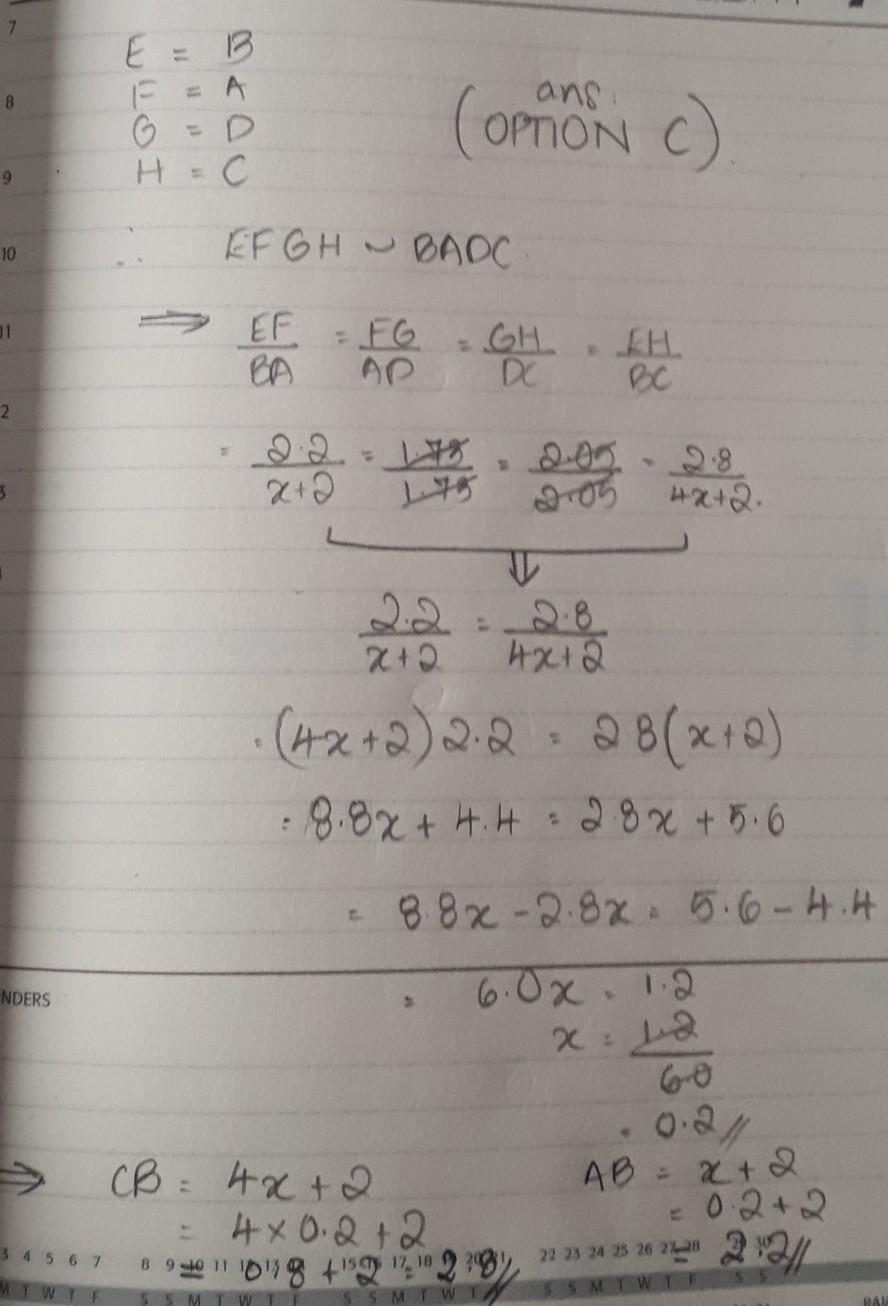 7
E = B
F = A
8
ans.
G = D
(OPTION C).
9
H = C
10
∴ EFGH ~ BADC
11
⇒ EF/BA = FG/AD = GH/DC = EH/BC
2
= 2.2/x+2 = 1.75/1.75 = 2.05/2.05 = 2.8/4x+2.
3
⇓
2.2/x+2 = 2.8/4x+2
= (4x+2)2.2 = 2 8(x+2)
= 8.8x + 4.4 = 2 8x + 5.6
= 8.8x - 2.8x = 5.6 - 4.4
NDERS
= 6.0x = 1.2
x = 1.2/6.0
= 0.2//
⇒ CB = 4x + 2
AB = x + 2
= 4 x 0.2 + 2
= 0.2 + 2
= 0.8 + 2 = 2.8//
= 2.2//
3 4 5 6 7 8 9 10 11 15 17 18 22 23 24 25 26 27 28 30
M T W T F S S M T W T F S S M T W T S S M T W T F S S